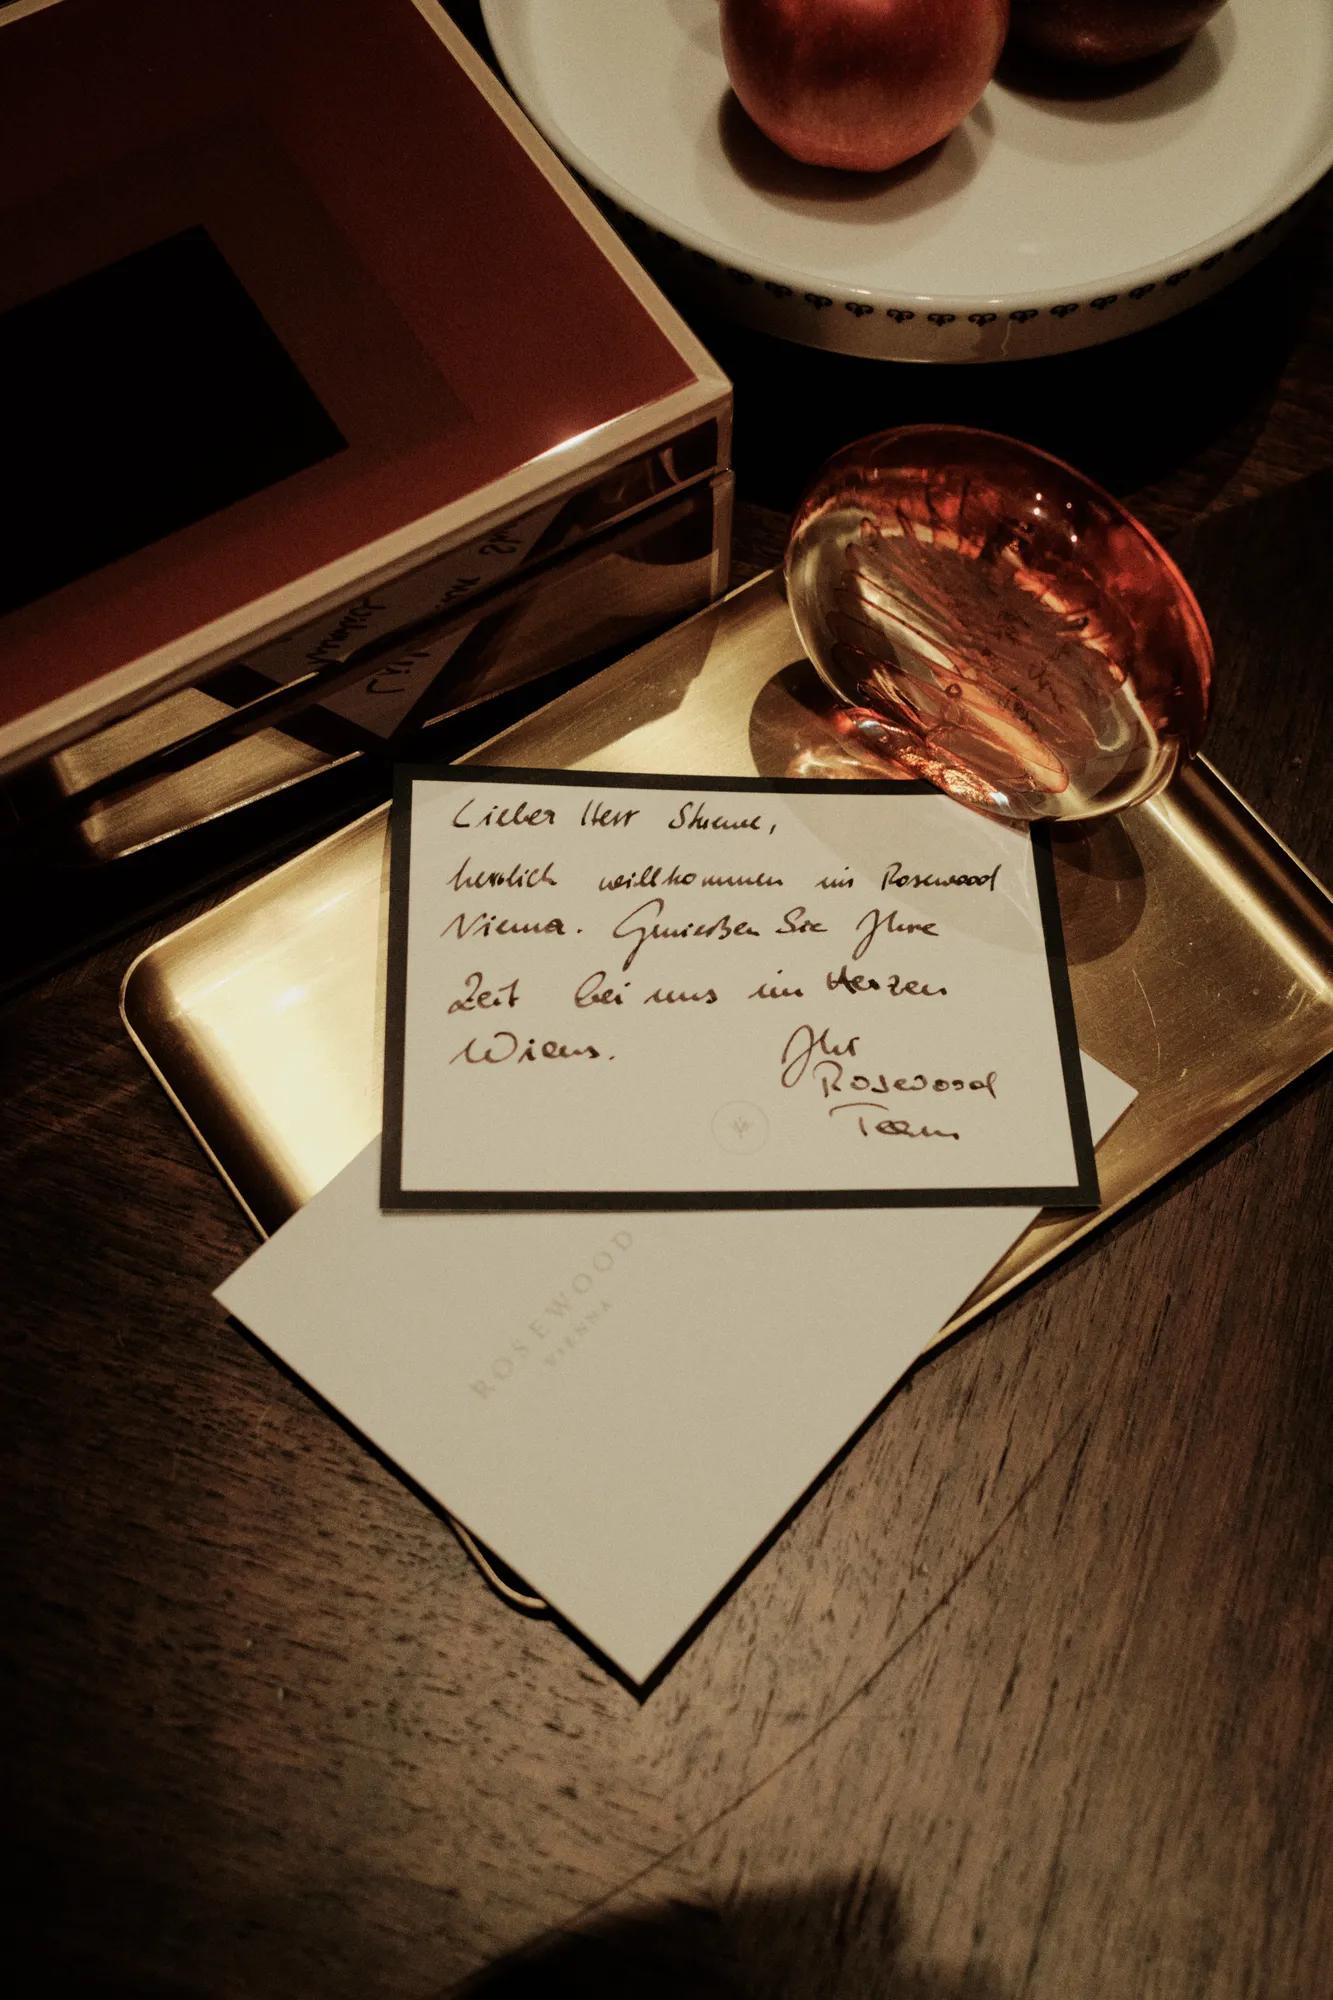 Lieber Herr
herzlich willkommen im Rosewood
Vienna. Genießen Sie Ihre
Zeit bei uns im Herzen
Wiens.
Ihr
Rosewood
Team
ROSEWOOD
VIENNA